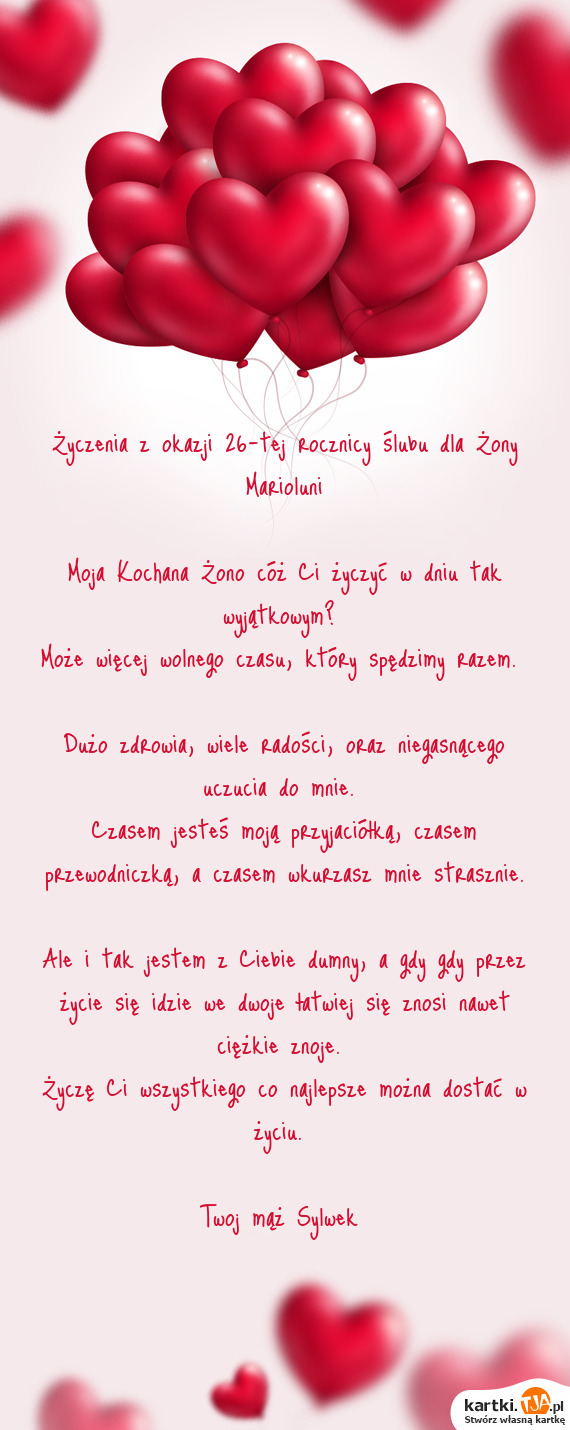 Życzenia z okazji 26-tej rocznicy ślubu dla Żony
Marioluni
Moja Kochana Żono cóż Ci życzyć w dniu tak
wyjątkowym?
Może więcej wolnego czasu, który spędzimy razem.
Dużo zdrowia, wiele radości, oraz niegasnącego
uczucia do mnie.
Czasem jesteś moją przyjaciółką, czasem
przewodniczką, a czasem wkurzasz mnie strasznie.
Ale i tak jestem z Ciebie dumny, a gdy gdy przez
życie się idzie we dwoje łatwiej się znosi nawet
ciężkie znoje.
Życzę Ci wszystkiego co najlepsze można dostać w
życiu.
Twoj mąż Sylwek
kartki.TJA.pl
Stwórz własną kartkę